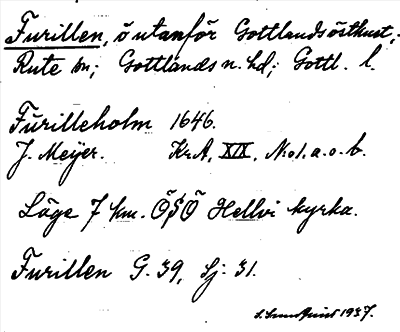 Furillen, ö utanför Gottlands östkust,
Rute sn; Gottlands n. hd; Gottl. l.
Furilleholm 1646.
J. Meijer. Kr.A, XIX, N:o 1. a. o. b.
Läge 7 km. ÖSÖ Hellvi kyrka.
Furillen G. 39, Sj. 31.
1937.